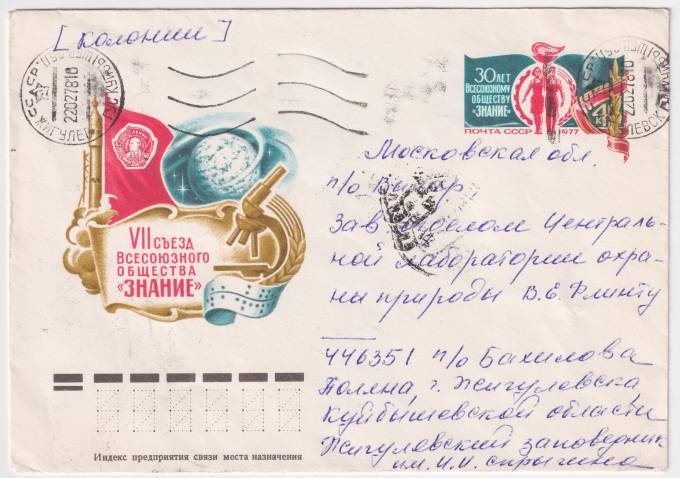 [колонии]
22027810
30 ЛЕТ
ВСЕСОЮЗНОМУ
ОБЩЕСТВУ
"ЗНАНИЕ"
ПОЧТА СССР 1977
4К
22027810
Московская обл.
п/о
Зав отделом Централь-
ной лаборатории охра-
ны природы В.Е. Флинту
VII СЪЕЗД
ВСЕСОЮЗНОГО
ОБЩЕСТВА
«ЗНАНИЕ»
446351 п/о Бахилова
Поляна, г. Жигулевска
Куйбышевской области
Жигулевский заповедник
им. И.И. Спрыгина
Индекс предприятия связи места назначения